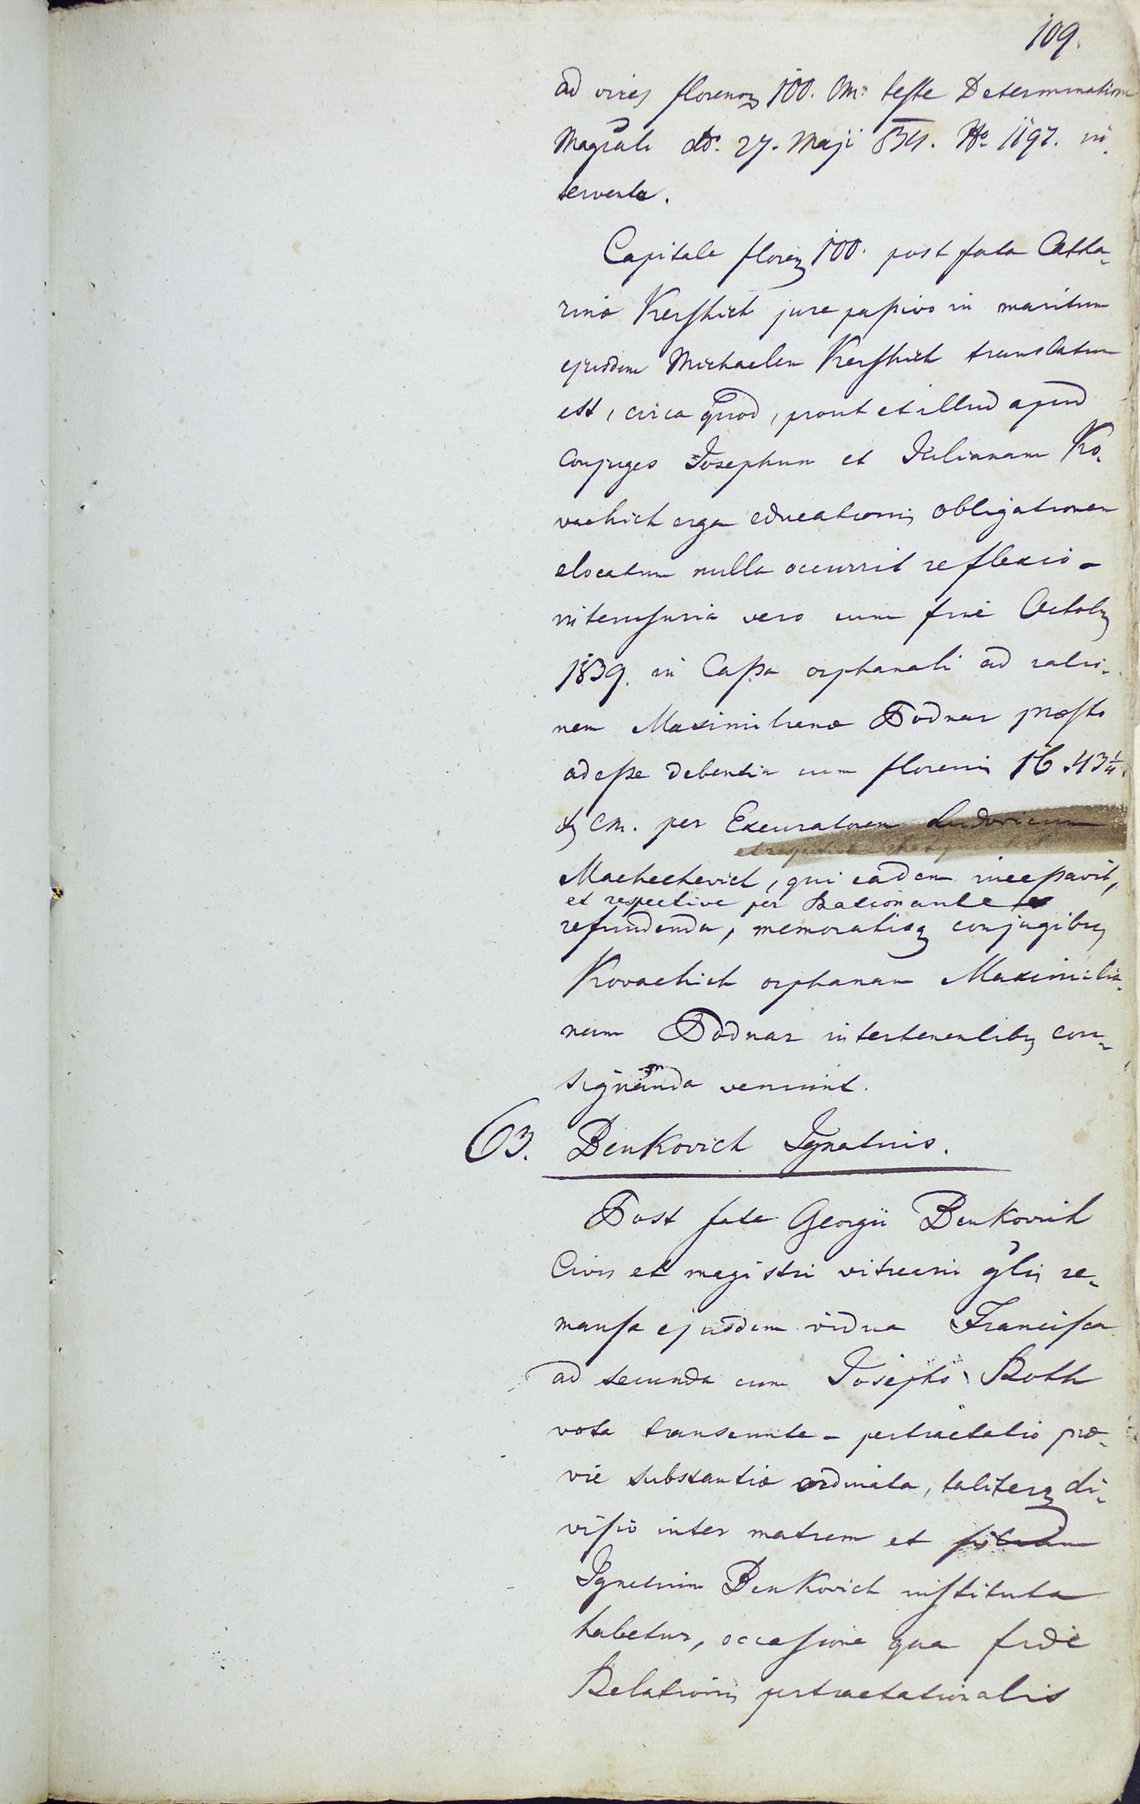 109.
ad vires florenor 100. CM. teste Determinatione
Magrali ddo 27. Maji 834. No 1197. in-
terventa.
Capitale floren 100. post fata Catha-
rinæ Kershich jure passivo in maritum
ejusdem Michaelem Kershich translatum
est, circa quod, prout et illud apud
Conjuges Josephum et Julianam Ko-
vachich erga educationis obligationem
elocatum nulla occurrit reflexio -
interusuria vero cum fine Octobr
1839. in Cassa orphanali ad ratio-
nem Maximilianæ Bodnar præsto
adesse debentia cum florenis 16. 43 1/4
CM. per Excuratorem Ludovicum
Machechevich, qui eadem incepavit,
et respective per Rationante
refundenda, memoratisq conjugibus
Kovachich orphanam Maximilia-
nam Bodnar intertenentibus con-
signanda veniunt.
63. Benkovich Ignatius.
Post fata Georgii Benkovich
Civis et magistri vitrearii glis re-
mansa ejusdem vidua Francisca
ad secunda cum Josepho Roth
vota transeunte - pertractatio præ-
viæ substantiæ ordinata, taliterq di-
visio inter matrem et filium
Ignatium Benkovich instituta
habetur, occasione qua fide
Relationis pertractationalis